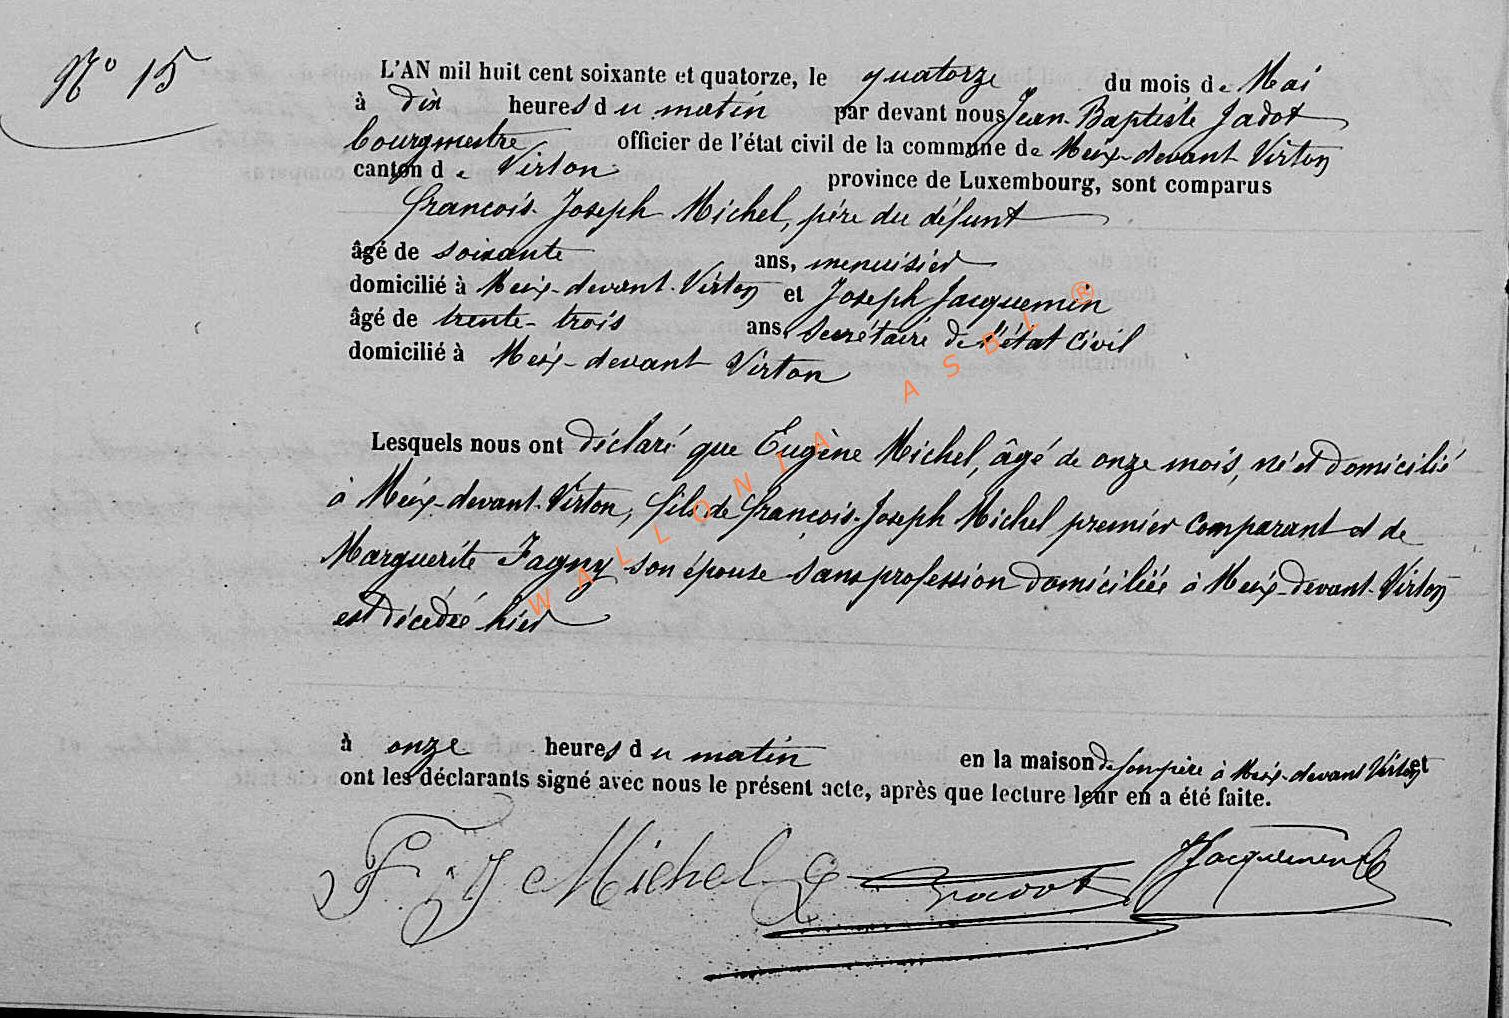 N° 15
L'AN mil huit cent soixante et quatorze, le quatorze du mois de Mai
à dix heures du matin par devant nous Jean-Baptiste Jadot
bourgmestre officier de l'état civil de la commune de Meix-devant Virton
canton de Virton province de Luxembourg, sont comparus
François-Joseph Michel, père du défunt
âgé de soixante ans, menuisier
domicilié à Meix-devant-Virton et Joseph Jacquemin
âgé de trente-trois ans, secrétaire de l'état civil
domicilié à Meix-devant Virton
Lesquels nous ont déclaré que Eugène Michel, âgé de onze mois, né et domicilié
à Meix-devant-Virton, fils de François-Joseph Michel premier comparant et de
Marguerite Fagny son épouse sans profession domiciliée à Meix-devant-Virton
est décédé hier
à onze heures du matin en la maison de son père à Meix-devant Virton et
ont les déclarants signé avec nous le présent acte, après que lecture leur en a été faite.
F J Michel Jadot JJacquemin
WALLONIA ASBL ®